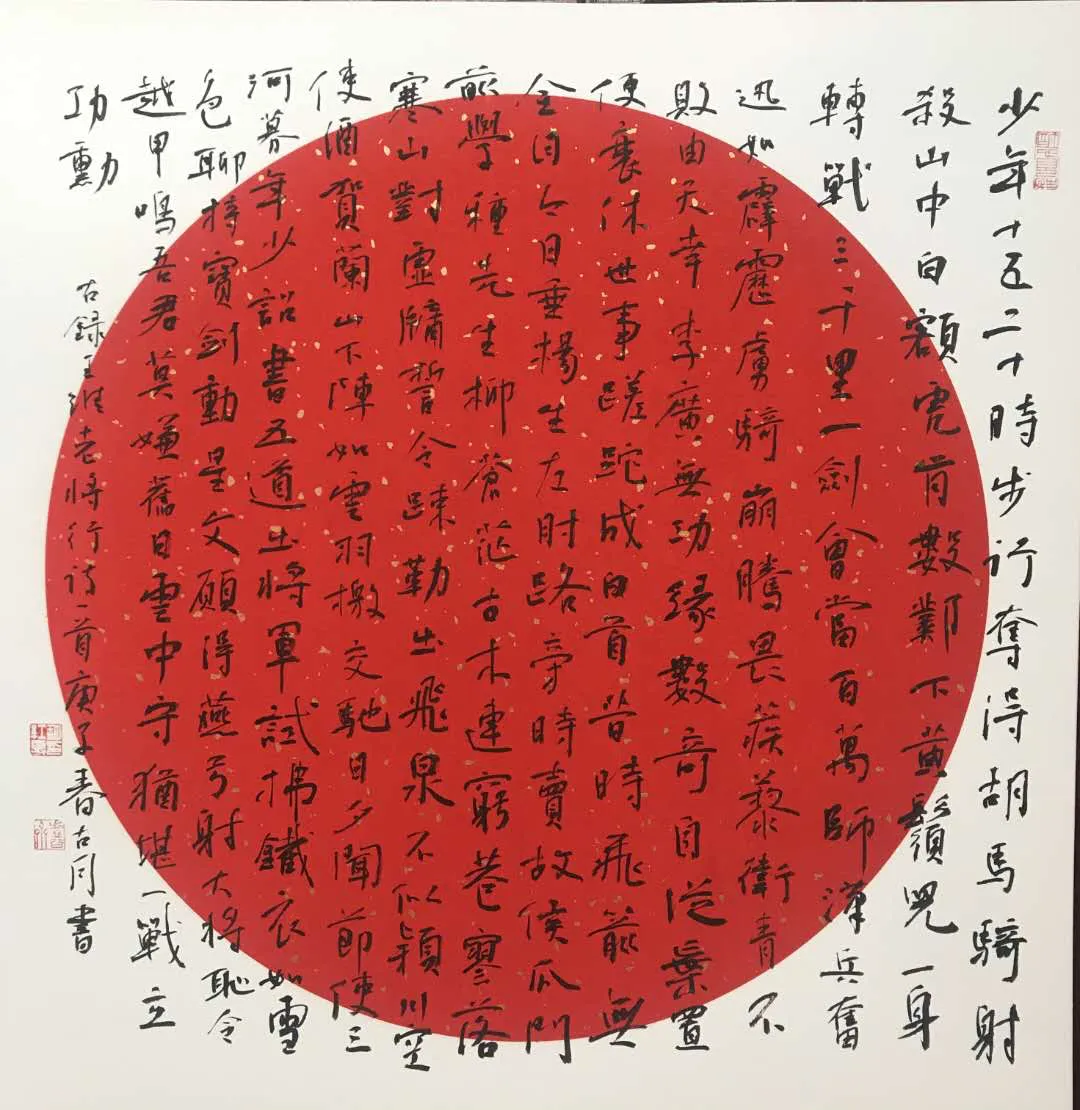 少年十五二十時步行奪得胡馬騎射
殺山中白額虎肯數鄴下黃鬚兒一身
轉戰三千里一劍會當百萬師漢兵奮
迅如霹靂虜騎崩騰畏蒺藜衛青不
敗由天幸李廣無功緣數奇自從棄置
便衰朽世事蹉跎成白首昔時飛箭無
全目今日垂楊生左肘路旁時賣故侯瓜門
前學種先生柳蒼茫古木連窮巷寥落
寒山對虛牖誓令疎勒出飛泉不似穎川空
使酒賀蘭山下陣如雲羽檄交馳日夕聞節使三
河募年少詔書五道出將軍試拂鐵衣如雪
色聊持寶劍動星文願得燕弓射大將恥令
越甲鳴吾君莫嫌舊日雲中守猶堪一戰立
功勳
右錄王維老將行詩一首庚子春古同書